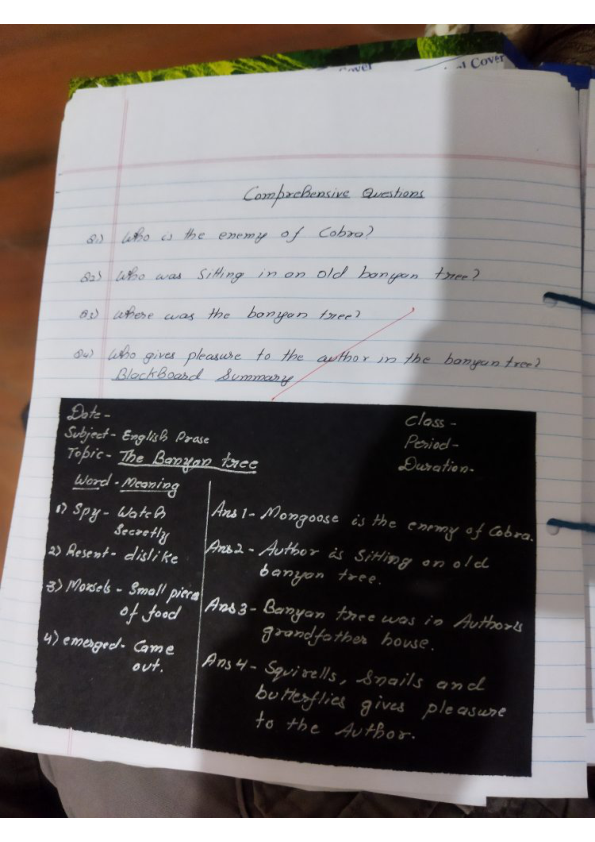 Cover
al Cover
Comprehensive Questions
Q1) Who is the enemy of Cobra?
Q2) Who was sitting in an old banyan tree?
Q3) Where was the banyan tree?
Q4) Who gives pleasure to the author in the banyan tree?
BlackBoard Summary
Date-
Subject- English Prose
Topic- The Banyan tree
Class-
Period-
Duration-
Word - Meaning
1) Spy - Watch
Secretly
2) Resent- dislike
3) Morsels - Small pieces
of food
4) emerged- Came
out.
Ans 1- Mongoose is the enemy of Cobra.
Ans2 - Author is sitting on old
banyan tree.
Ans 3 - Banyan tree was in Author's
grandfather house.
Ans 4 - Squirells, Snails and
butterflies gives pleasure
to the Author.